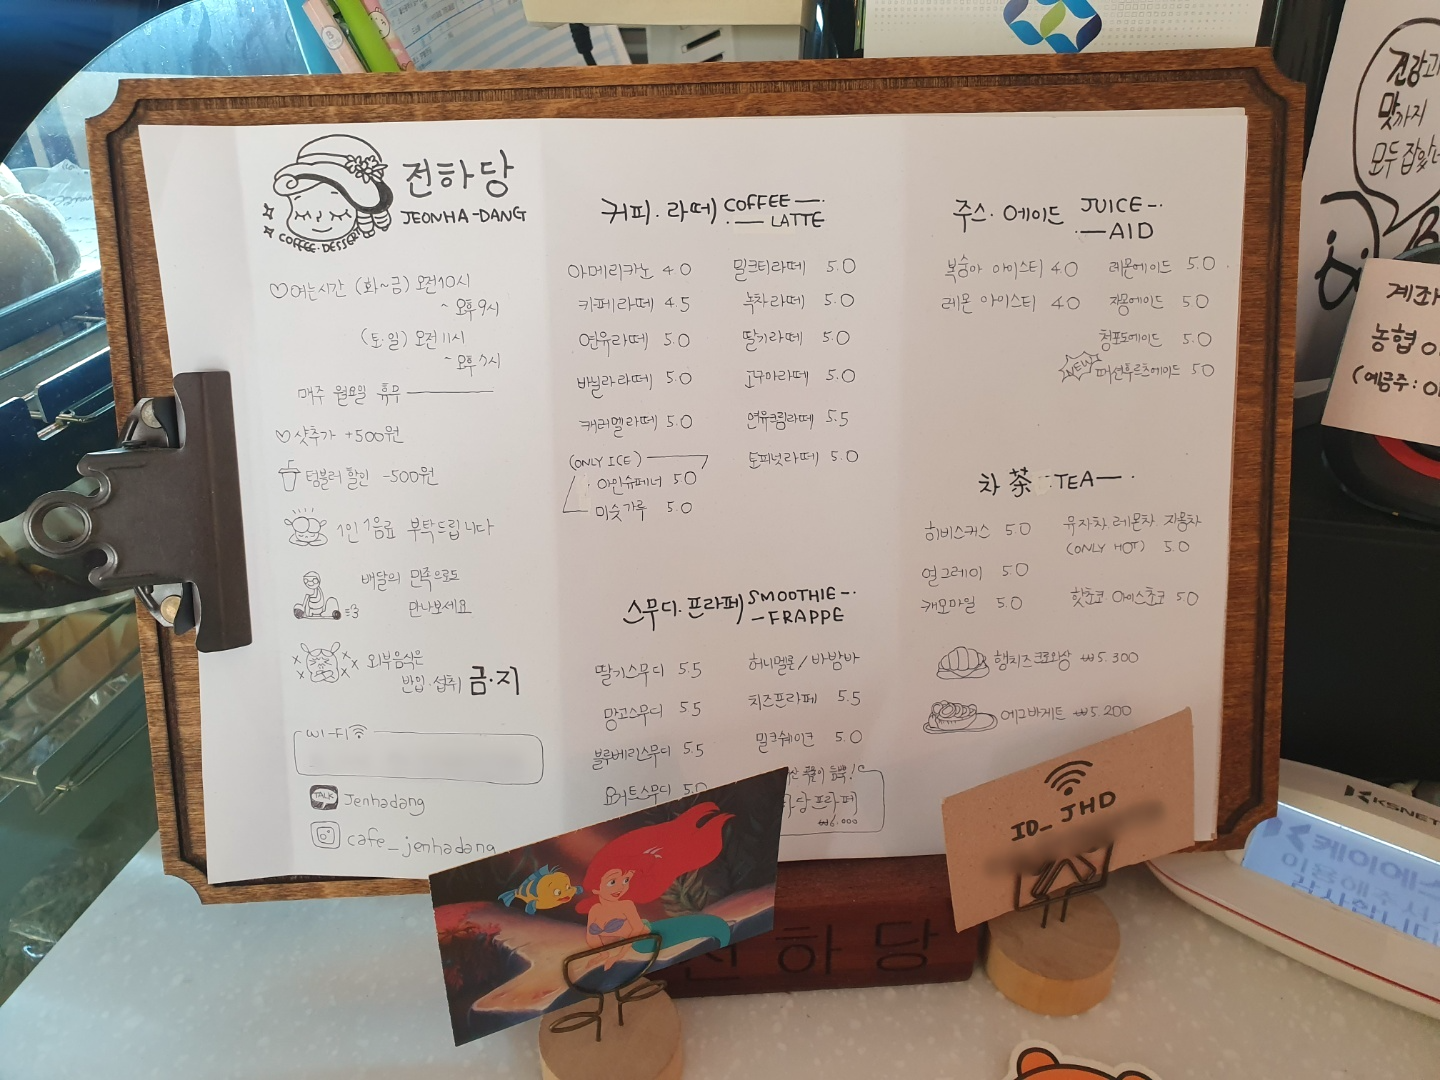 전하당
JEONHA-DANG
COFFEE·DESSERT
여는시간 (화~금) 오전10시
~ 오후 9시
(토·일) 오전 11시
~ 오후 7시
매주 월요일 휴무
샷추가 +500원
텀블러 할인 -500원
1인 1음료 부탁드립니다
배달의 민족으로도
만나보세요
외부음식은
반입·섭취 금·지
WI-FI
TALK Jenhadang
cafe_jenhadang
커피·라떼 COFFEE
LATTE
아메리카노 4.0
카페라떼 4.5
연유라떼 5.0
바닐라라떼 5.0
캐러멜라떼 5.0
(ONLY ICE)
아인슈페너 5.0
미숫가루 5.0
밀크티라떼 5.0
녹차라떼 5.0
딸기라떼 5.0
고구마라떼 5.0
연유크림라떼 5.5
토피넛라떼 5.0
스무디·프라페 SMOOTHIE
FRAPPE
딸기스무디 5.5
망고스무디 5.5
블루베리스무디 5.5
요거트스무디 5.0
허니멜론/바밤바
치즈프라페 5.5
밀크쉐이크 5.0
당프라페
₩6.000
주스·에이드 JUICE
AID
복숭아 아이스티 4.0
레몬 아이스티 4.0
레몬에이드 5.0
자몽에이드 5.0
청포도에이드 5.0
NEW 패션후르츠에이드 5.0
차 茶 TEA
히비스커스 5.0
얼그레이 5.0
캐모마일 5.0
유자차 레몬차 자몽차
(ONLY HOT) 5.0
핫초코 아이스초코 5.0
햄치즈크로와상 ₩5.300
에그바게트 ₩5.200
ID_JHD
전하당
건강과
맛까지
모두 잡았
계좌
농협
(예금주:
KSNET
케이에스
이용해 주
감사합니다